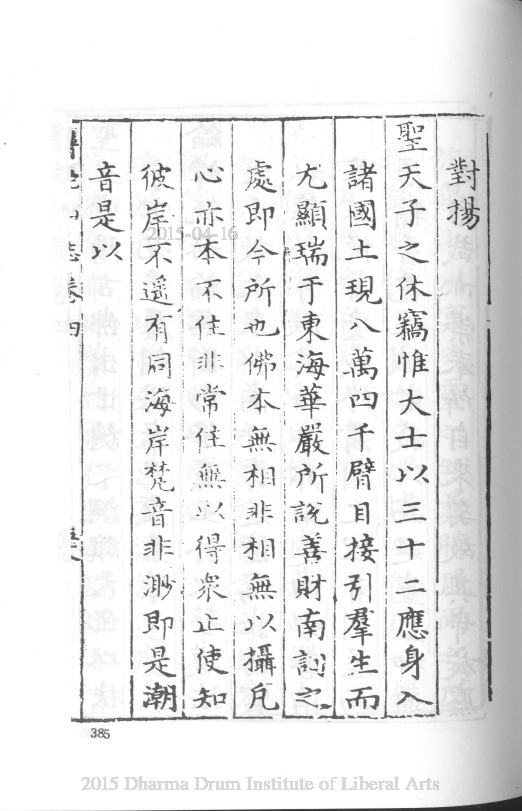 對揚
聖天子之休竊惟大士以三十二應身入
諸國土現八萬四千臂目接引羣生而
尤顯瑞于東海華嚴所說善財南詢之
處即今所也佛本無相非相無以攝凡
心亦本不住非常住無以得衆止使知
彼岸不遥有同海岸梵音非渺即是潮
音是以
山志卷四
385
2015-04-16
2015 Dharma Drum Institute of Liberal Arts